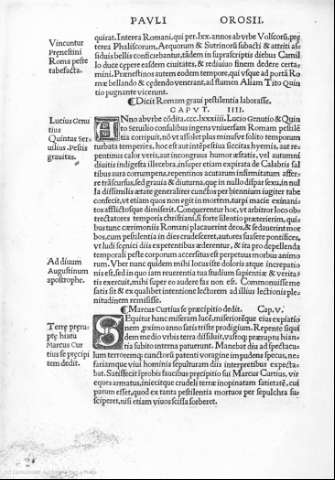 PAVLI OROSII.
quirat. Interea Romani, qui per .lxx. annos ab vrbe Volscorū, præ
terea Phaliscorum, Aequorum & Sutrinorū subacti & attriti as
siduis bellis conficiebantur, tādem in suprascriptis diebus Camil
lo duce cepere easdem ciuitates, & rediuiuo finem dedere certa-
mini. Prænestinos autem eodem tempore, qui vsque ad portā Ro
mæ bellando & cędendo venerant, ad flumen Aliam Tito Quin
tio pugnante vicerunt.
Vincuntur
Prenestini
Romæ peste
tabefacta.
¶Dicit Romam graui pestilentia laborasse.
CAPVT. IIII.
Lucius Genu
tius
Quintus Ser
uilius. Pestis
grauitas.
ANno ab vrbe cōdita .ccc.lxxxiiii. Lucio Genutio & Quin
to Seruilio consulibus ingens vniuersam Romam pestilē
tia corripuit, nō vt assolet plus minusve solito temporum
turbata temperies, hoc est aut intēpestiua siccitas hyemis, aut re
pentinus calor veris, aut incongruus humor æstatis, vel autumni
diuitis indigesta illecebra, insuper etiam expirata de Calabris sal
tibus aura corrumpens, repentinos acutarum infirmitatum affer-
re trāscursus, sed grauis & diuturna, quæ in nullo dispar sexu, in nul
la dissimilis ætate generaliter cunctos per biennium iugiter tabe
confecit, vt etiam quos non egit in mortem, turpi macie exinani-
tos afflictosque dimiserit. Conquererentur hoc, vt arbitror loco ob-
trectatores temporis christiani, si forte silentio præterierim, qui-
bus tunc cærimoniis Romani placauerint deos, & sedauerint mor
bos, cum pestilentia in dies crudesceret, autores suasere pontifices,
vt ludi scenici diis expetentibus æderentur, & ita pro depellenda
temporali peste corporum accersitus est perpetuus morbus animo
rum. Vber nunc quidem mihi locus iste doloris atque increpatio
nis est, sed in quo iam reuerentia tua studium sapientiæ & verita-
tis exercuit, mihi super eo audere fas non est. Commonuisse me
satis sit & ex qualibet intentione lectorem ad illius lectionis ple-
nitudinem remisisse.
Ad diuum
Augustinum
apostrophe.
¶Marcus Curtius se præcipitio dedit. Cap. V.
Terræ prærup
tę hiatu
Marcus Cur
tius se pręcipi
tem dedit.
SEquitur hanc miseram luem, miserioréque eius expiatio
nem, proximo anno satis triste prodigium. Repente siqui
dem medio vrbis terra dissiluit, vastoque præruptu hian-
tia subito interna patuerunt. Manebat diu ad spectacu
lum terroremque cunctorū patenti voragine impudens specus, ne-
fariamque viui hominis sepulturam diis interpretibus expecta-
bat. Satisfecit improbis faucibus præcipitio sui Marcus Curtius, vir
eques armatus, iniecitque crudeli terræ inopinatam satietatē, cui
parum esset, quod ex tanta pestilentia mortuos per sepulchra su-
sciperet, nisi etiam viuos scissa sorberet.